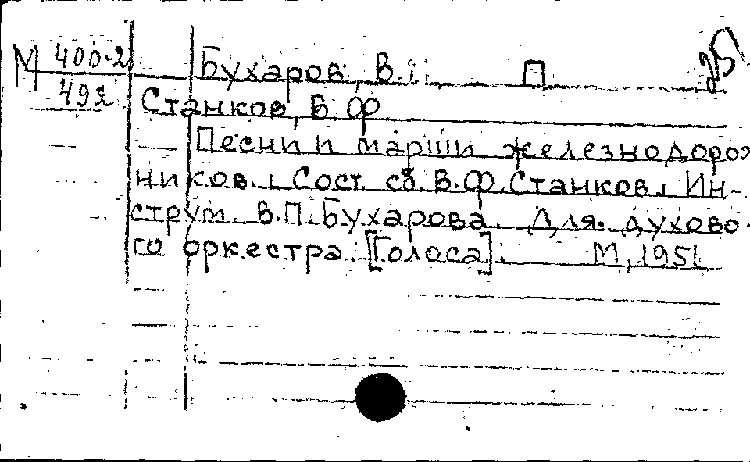 М 400-2
492
Бухаров, В. П
Станков, В. Ф
Песни и марши железнодорож
ников. Сост. сб. В.Ф. Станков. Ин-
струм. В.П. Бухарова. Для духово-
го оркестра. [Голоса]. М, 1951